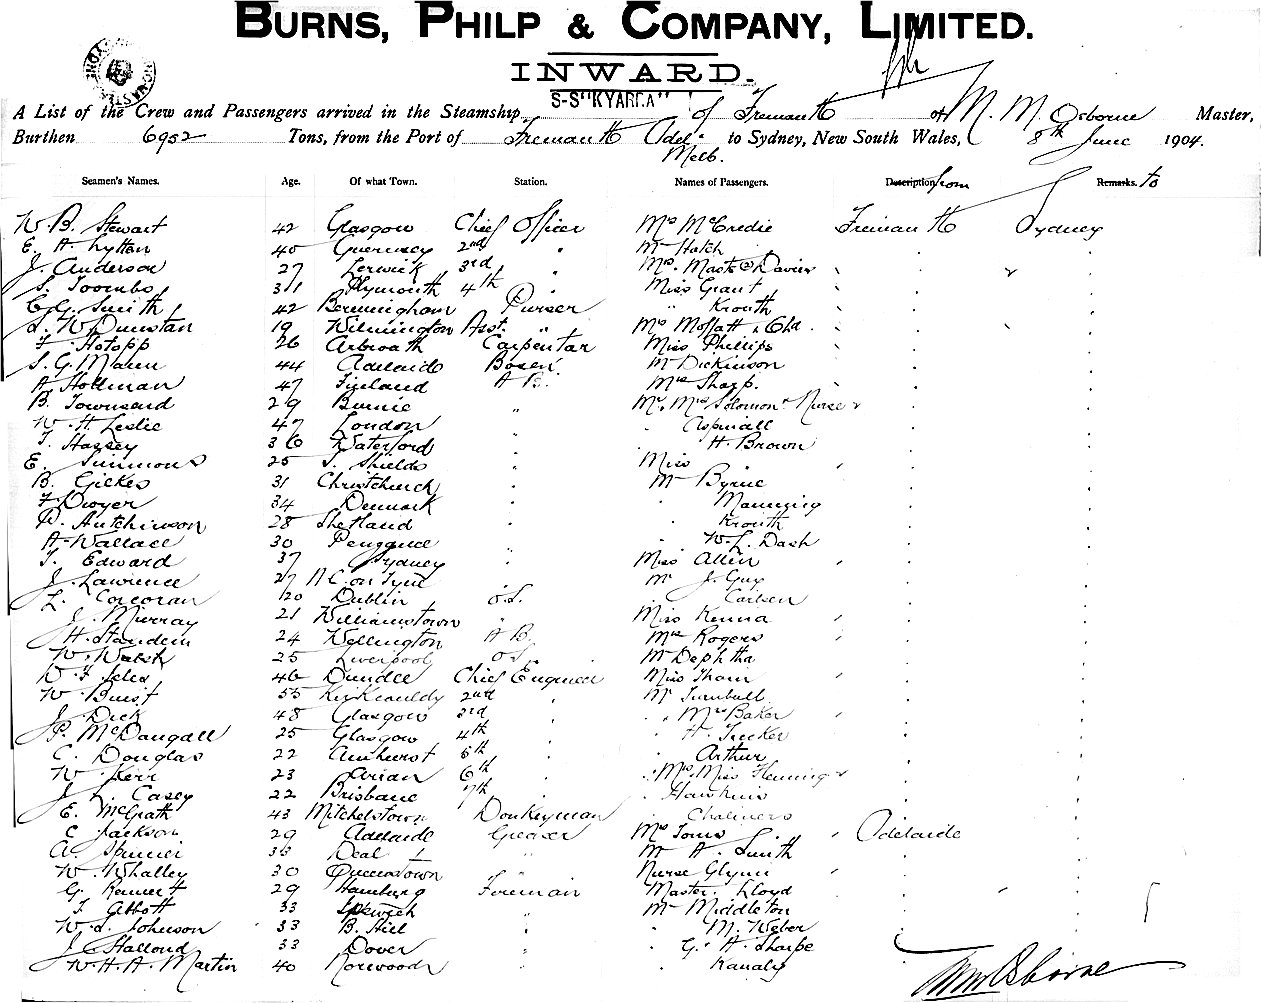 BURNS, PHILP & COMPANY, LIMITED.
INWARD.
S-S "KYARRA"
A List of the Crew and Passengers arrived in the Steamship of Fremantle of M. M. Osborne Master,
Burthen 6952 Tons, from the Port of Fremantle Adel. to Sydney, New South Wales, 8th June 1904.
Melb.
Seamen's Names. Age. Of what Town. Station. Names of Passengers. Description from Remarks. to
W. B. Stewart 42 Glasgow Chief Officer McCredie Fremantle Sydney
E. A. Lytten 40 Guernsey 2nd " Mr Hatch
J. Anderson 27 Lerwick 3rd Mrs. Master Davies
S. Toombs 31 Plymouth 4th Miss Grant
C. G. Smith 42 Bermingham Purser " Krouth
S. W. Dunstan 19 Wilmington Asst. " Moffatt & Chd.
F. Hotopp 26 Arbroath Carpentar Miss Phillips
S. G. Mann 44 Adelaide Bosen Mr Dickinson
A Hollman 47 Finland A B. Mrs Sharp.
B. Townsend 29 Burnie " Mr. Mrs Solomon & Nurse
W. H. Leslie 47 London Aspinall
T. Hassey 36 Waterford H. Brown
E. Simmons 25 S. Shields Miss
B. Gilkes 31 Christchurch Mr Byrne
F. Dwyer 34 Denmark Manning
Hutchinson 28 Shetland Krouth
A Wallace 30 W. L. Dash
T. Edward 37 Sydney Miss Allen
J. Lawrence 27 N. C. on Tyne Mr J. Guy
L. Corcoran 20 Dublin O.S. Carlsen
J. Murray 21 Williamstown Miss Kenna
H. Standem 24 Wellington A B. Mrs Rogers
W. Walsh 25 Liverpool O.S. Mr Dephtha
W. F. Isles 46 Dundee Chief Engineer Miss Tham
W. Buist 55 Kirkcauldy 2nd Mr Turnbull
J. Dick 48 Glasgow 3rd " Mrs Baker
P. McDougall 25 Glasgow 4th H. Tucker
C. Douglas 22 Amhurst 5th Arthur
W. Kerr 23 Arian 6th Mrs, Miss Fleming
J. Casey 22 Brisbane 7th Hawkins
E. McGrath 43 Mitchelstown Donkeyman Chalmers
C Jackson 29 Adelaide Greaser Toms Adelaide
A. 33 Deal " Mr A. Smith
W. Whalley 30 Queenstown Nurse Glynn
G. 29 Hamburg Fireman Master Lloyd
T. Abbott 33 Ipswich Mr Middleton
W. S. Johnson 33 B. Hill " M. Weber
J. Halloud 33 Dover G. A. Sharpe
W. H. A. Martin 40 Norwood Kanaly
Osborne